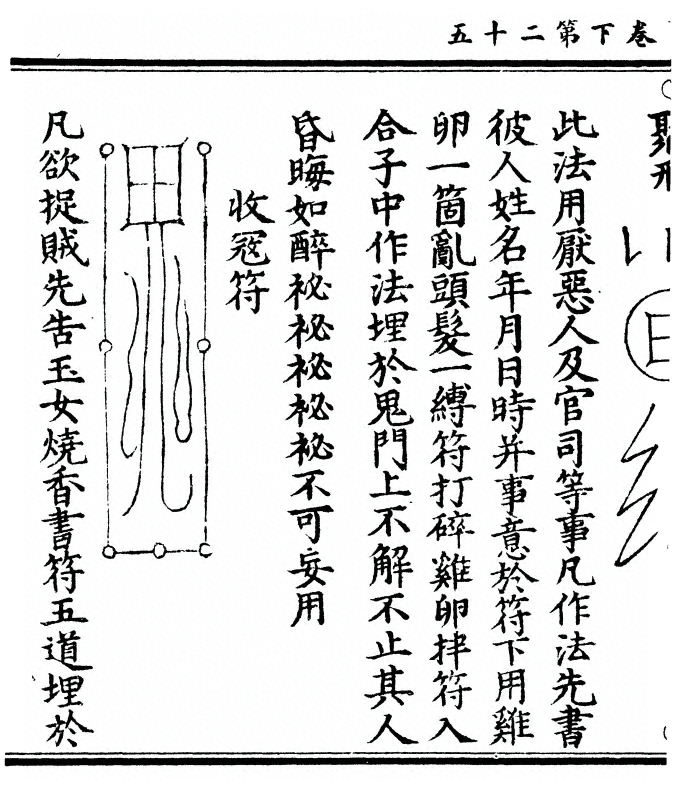 卷下第二十五
此法用厭惡人及官司等事凡作法先書
彼人姓名年月日時并事意於符下用雞
卵一箇亂頭髮一縛符打碎雞卵拌符入
合子中作法埋於鬼門上不解不止其人
昏晦如醉祕祕祕祕祕不可妄用
收冦符
凡欲捉賊先告玉女燒香書符五道埋於